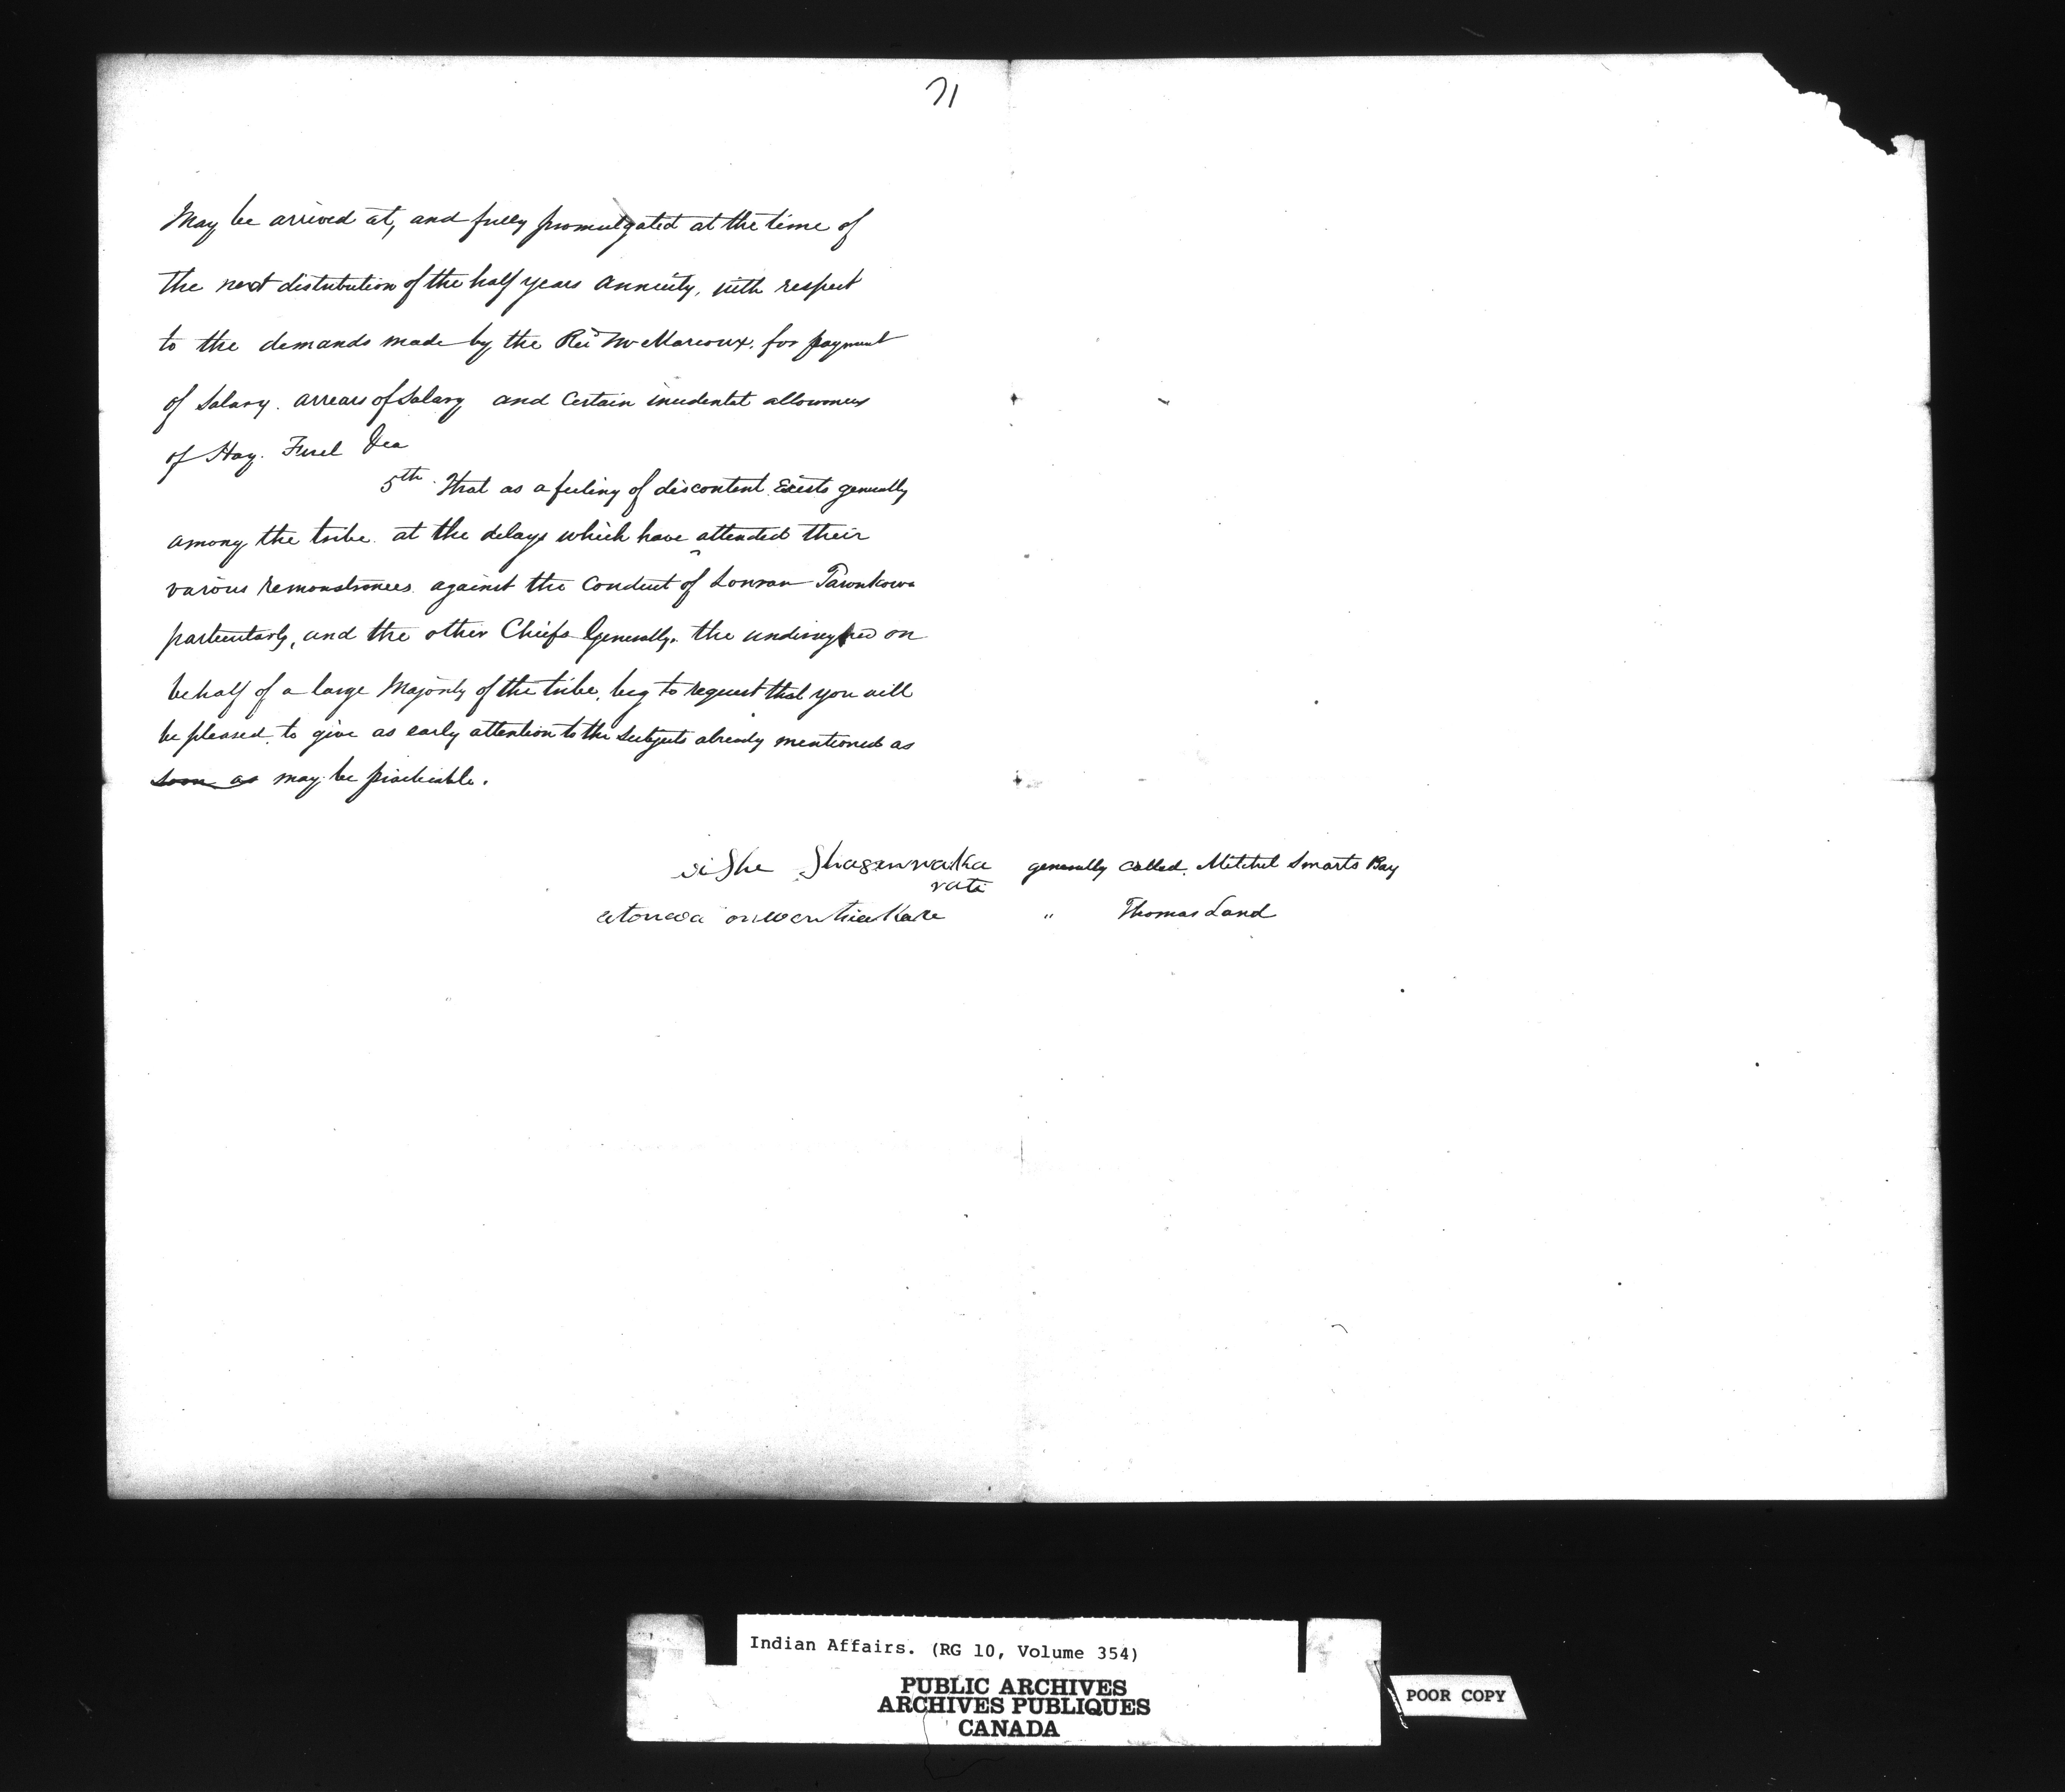 71
May be arrived at, and fully promulgated at the time of
the next distribution of the half years Annuity, with respect
to the demands made by the Revd Mr Marcoux. for payment
of Salary. arrears of Salary and Certain incidental allowances
of Hay. Fuel &ca
5th. That as a feeling of discontent Exists generally
among the tribe. at the delays which have attended their
various remonstrances against the Conduct of Lonran Taronkowa
particularly, and the other Chiefs Generally. the undersigned on
behalf of a large Majority of the tribe, beg to request that you will
be pleased to give as early attention to the Subjects already mentioned as
soon as may be practicable.
generally called. Mitchel Smarts Bay
rati
atonwa
" Thomas Land
Indian Affairs. (RG 10, Volume 354)
PUBLIC ARCHIVES
ARCHIVES PUBLIQUES
CANADA
POOR COPY